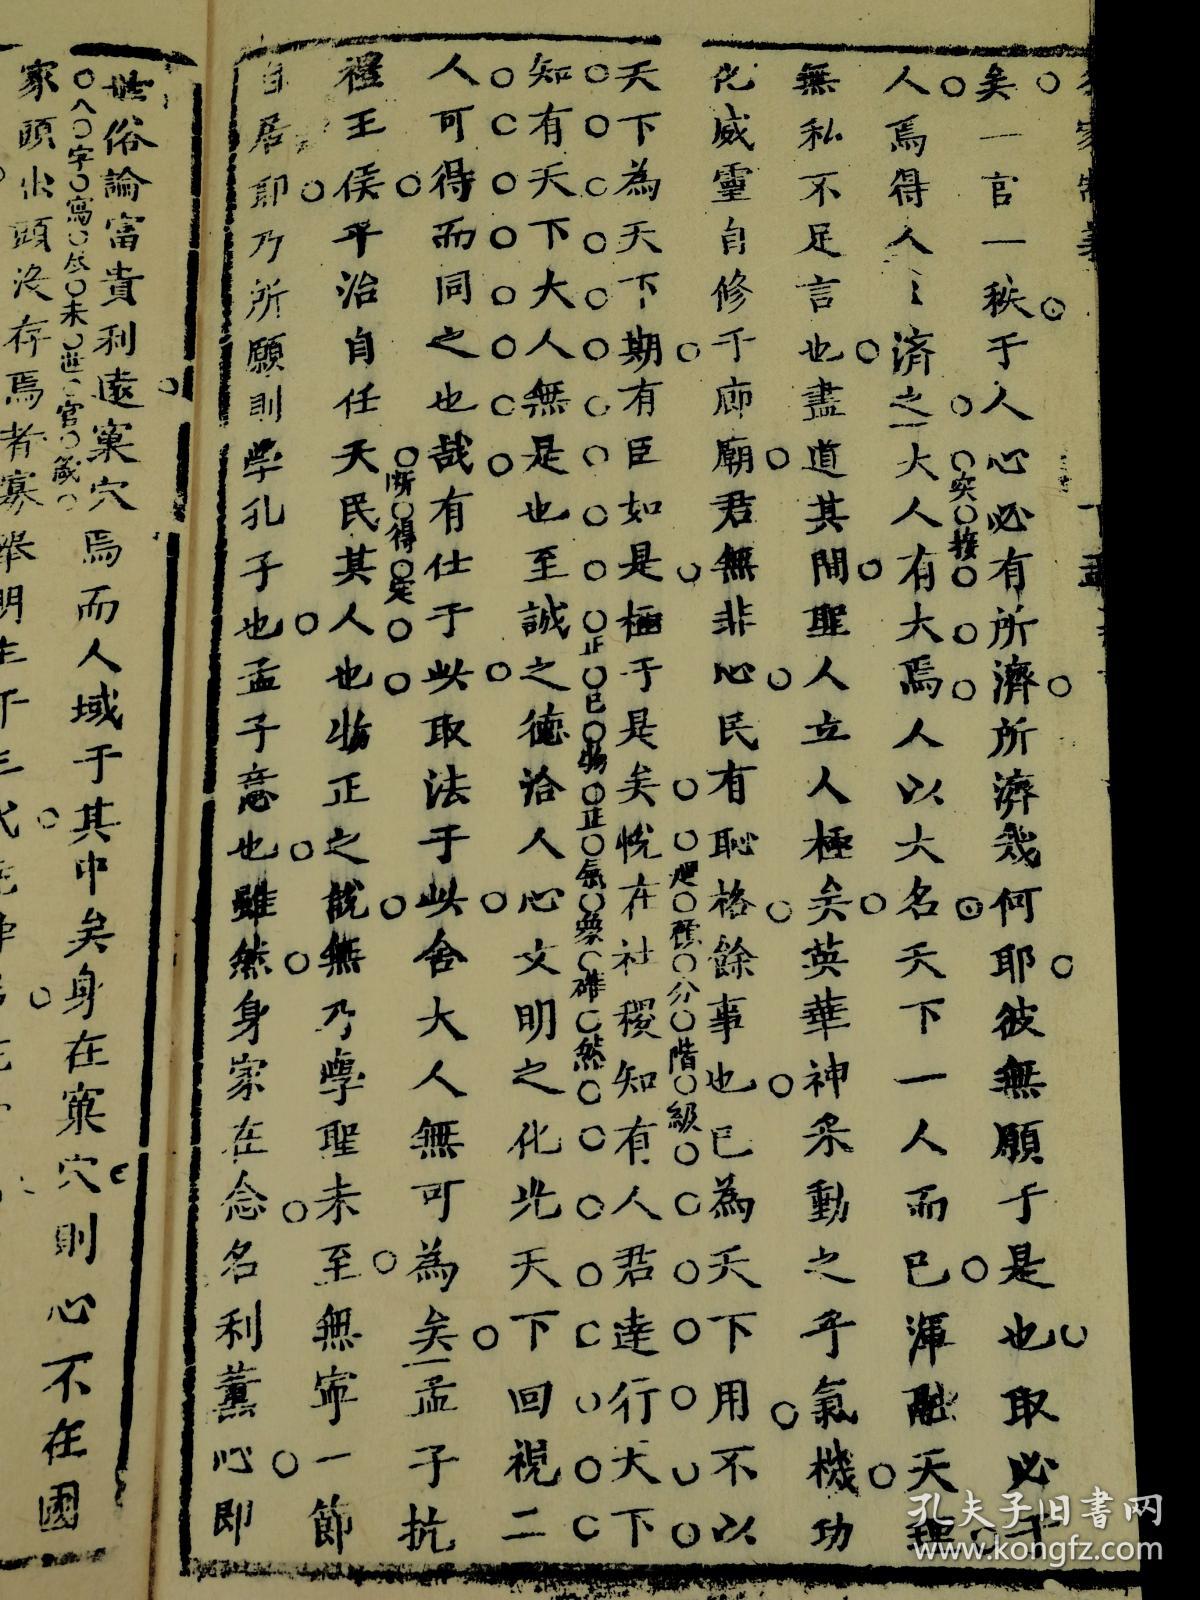 矣一官一秩于人心必有所濟所濟幾何耶彼無願于是也取必于
人焉得人〻濟之大人有大焉人以大名天下一人而已渾融天理
突接
無私不足言也盡道其間聖人立人極矣英華神采動之乎氣機功
化威靈自修于廊廟君無非心民有恥格餘事也已為天下用不以
天下為天下期有臣如是極于是矣悅在社稷知有人君達行天下
分階級
知有天下大人無是也至誠之德洽人心文明之化光天下回視二
正已物正氣象確然
人可得而同之也哉有仕于此取法于此舍大人無可為矣孟子抗
禮王侯平治自任天民其人也物正之說無乃學聖未至無寧一節
斷得定
自居即乃所願則學孔子也孟子意也雖然身家在念名利薰心即
世俗論富貴利達窠穴焉而人域于其中矣身在窠穴則心不在國
八字寫尽末世官箴
家頭出頭沒存焉者寡